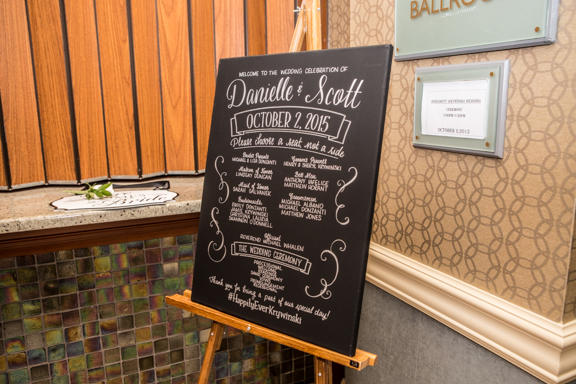 BALLRO
WELCOME TO THE WEDDING CELEBRATION OF
Danielle & Scott
OCTOBER 2, 2015
Please choose a seat not a side
Bride's Parents
MICHAEL & LISA DONZANTI
Matron of Honor
LINDSAY DUNCAN
Maid of Honor
SARAH SALVANEK
Bridesmaids
EMILY DONZANTI
JAMIE KRYWINSKI
SHANNON O'DONNELL
Groom's Parents
HENRY & SHERYL KRYWINSKI
Best Men
MATTHEW HORAN
Groomsmen
MICHAEL ALBANO
MICHAEL DONZANTI
MATTHEW JONES
Officiant
REVEREND MICHAEL WHALEN
THE WEDDING CEREMONY
PROCESSIONAL
Thank you for being a part of our special day!
#HappilyEverKrywinski
Bride
CEREMONY
OCTOBER 2, 2015